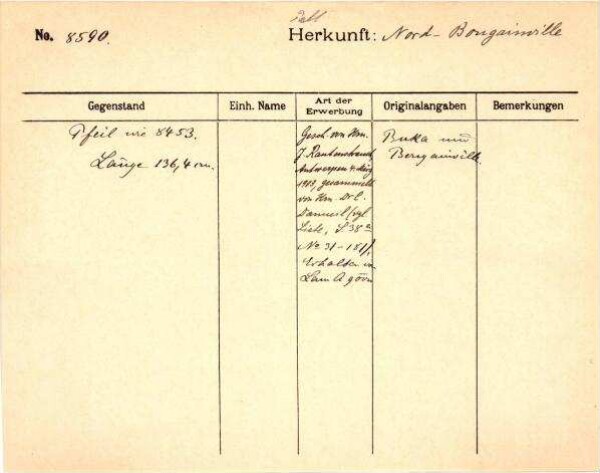 No. 8590.
Herkunft: Nord-Bougainville
Gegenstand
Einh. Name
Art der
Erwerbung
Originalangaben
Bemerkungen
Pfeil wie 8453.
Länge 136,4 cm.
Gesch. von Hrn.
J. Rautenstrauch
Antwerpen
1913, gesammelt
von Hrn. Dr.
Liste, S 38a
No 31-181),
Erhalten
Buka und
Bougainville